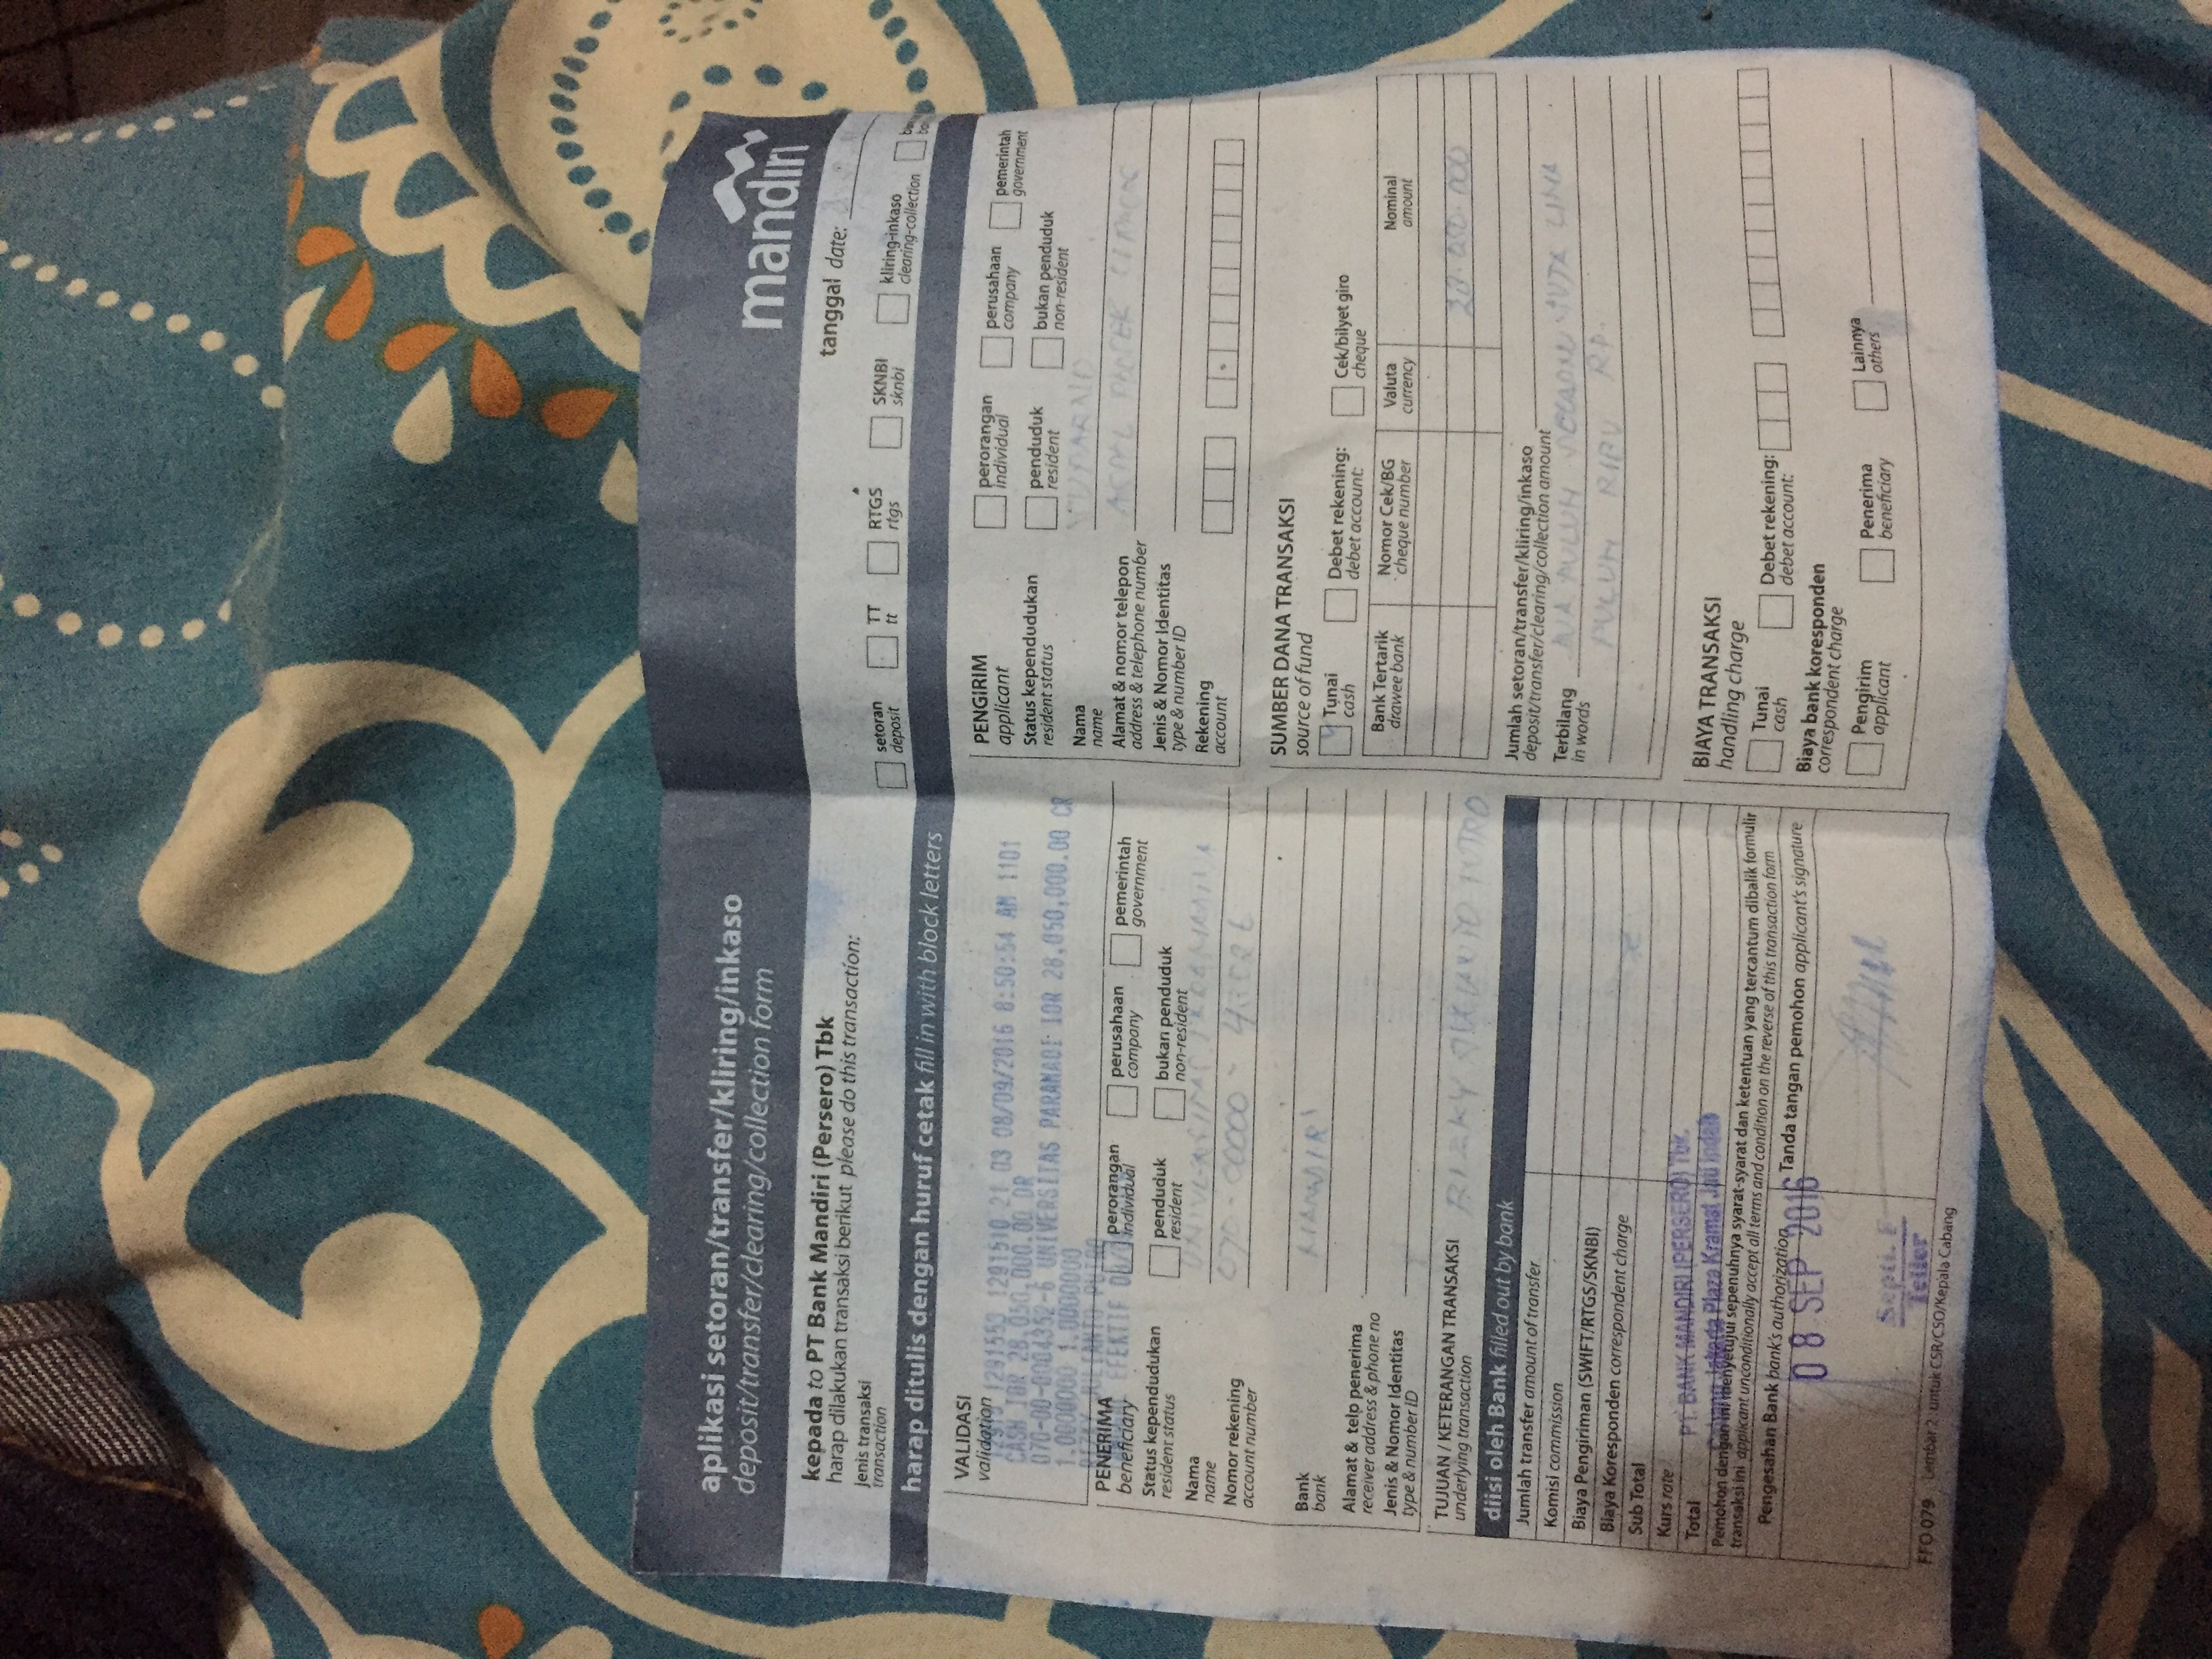 aplikasi setoran/transfer/kliring/inkaso
deposit/transfer/clearing/collection form
mandiri
kepada to PT Bank Mandiri (Persero) Tbk
harap dilakukan transaksi berikut please do this transaction:
tanggal date:
Jenis transaksi
transaction
setoran
deposit
TT
tt
RTGS
rtgs
SKNBI
sknbi
kliring-inkaso
clearing-collection
harap ditulis dengan huruf cetak fill in with block letters
VALIDASI
validation
1291553 1291510 21 03 08/09/2016 8:50:54 AM 1101
CASH IDR 28,050,000.00 DR
070-00-0004352-6 UNIVERSITAS PARAMADI IDR 28,050,000.00 CR
1.0000000 1.0000000
RIZKY JULIANTO PUTRO
EFEKTIF
PENERIMA
beneficiary
perorangan
individual
perusahaan
company
pemerintah
government
Status kependudukan
resident status
penduduk
resident
bukan penduduk
non-resident
Nama
name
UNIVERSITAS PARAMADINA
Nomor rekening
account number
070-00000-
Bank
bank
MANDIRI
Alamat & telp penerima
receiver address & phone no
Jenis & Nomor Identitas
type & number ID
TUJUAN / KETERANGAN TRANSAKSI
underlying transaction
RIZKY JULIANTO PUTRO
diisi oleh Bank filled out by bank
Jumlah transfer amount of transfer
Komisi commission
Biaya Pengiriman (SWIFT/RTGS/SKNBI)
Biaya Koresponden correspondent charge
Sub Total
Kurs rate
Total
PT. BANK MANDIRI (PERSERO) Tbk.
Cabang Jakarta Plaza Kramat Jati Indah
Pemohon dengan ini menyetujui sepenuhnya syarat-syarat dan ketentuan yang tercantum dibalik formulir
transaksi ini applicant unconditionally accept all terms and condition on the reverse of this transaction form
Pengesahan Bank bank's authorization
Tanda tangan pemohon applicant's signature
08 SEP 2016
Septi. F
Teller
FFO 079 Lembar 2 : untuk CSR/CSO/Kepala Cabang
PENGIRIM
applicant
perorangan
individual
perusahaan
company
pemerintah
government
Status kependudukan
resident status
penduduk
resident
bukan penduduk
non-resident
Nama
name
SUPARNO
Alamat & nomor telepon
address & telephone number
Jenis & Nomor Identitas
type & number ID
Rekening
account
SUMBER DANA TRANSAKSI
source of fund
Tunai
cash
Debet rekening:
debet account:
Cek/bilyet giro
cheque
Bank Tertarik
drawee bank
Nomor Cek/BG
cheque number
Valuta
currency
Nominal
amount
28.050.000
Jumlah setoran/transfer/kliring/inkaso
deposit/transfer/clearing/collection amount
Terbilang
in words
DUA PULUH DELAPAN JUTA LIMA
PULUH RIBU RP.
BIAYA TRANSAKSI
handling charge
Tunai
cash
Debet rekening:
debet account:
Biaya bank koresponden
correspondent charge
Pengirim
applicant
Penerima
beneficiary
Lainnya
others